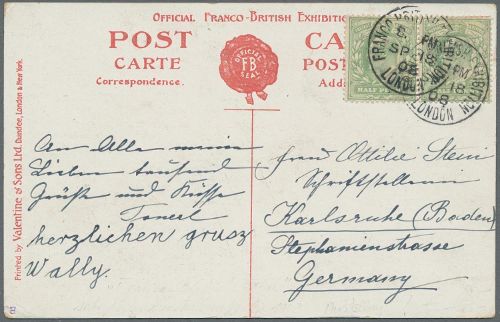 OFFICIAL FRANCO-BRITISH EXHIBITION
POST
CARTE
Correspondence.
OFFICIAL
FB
SEAL
CA
POS
Addr
HALF PE
FRANCO
LONDON
SP 18
08
PM
18
08
LONDON
Printed by Valentine & Sons Ltd. Dundee, London & New York.
An Alle meine
Lieben tausend
Grüße und Küsse
Tonerl
herzlichen grusz
Wally.
Frau Ottilie Stein
Schriftstellerin
Karlsruhe (Baden)
Stephanienstrasse
Germany